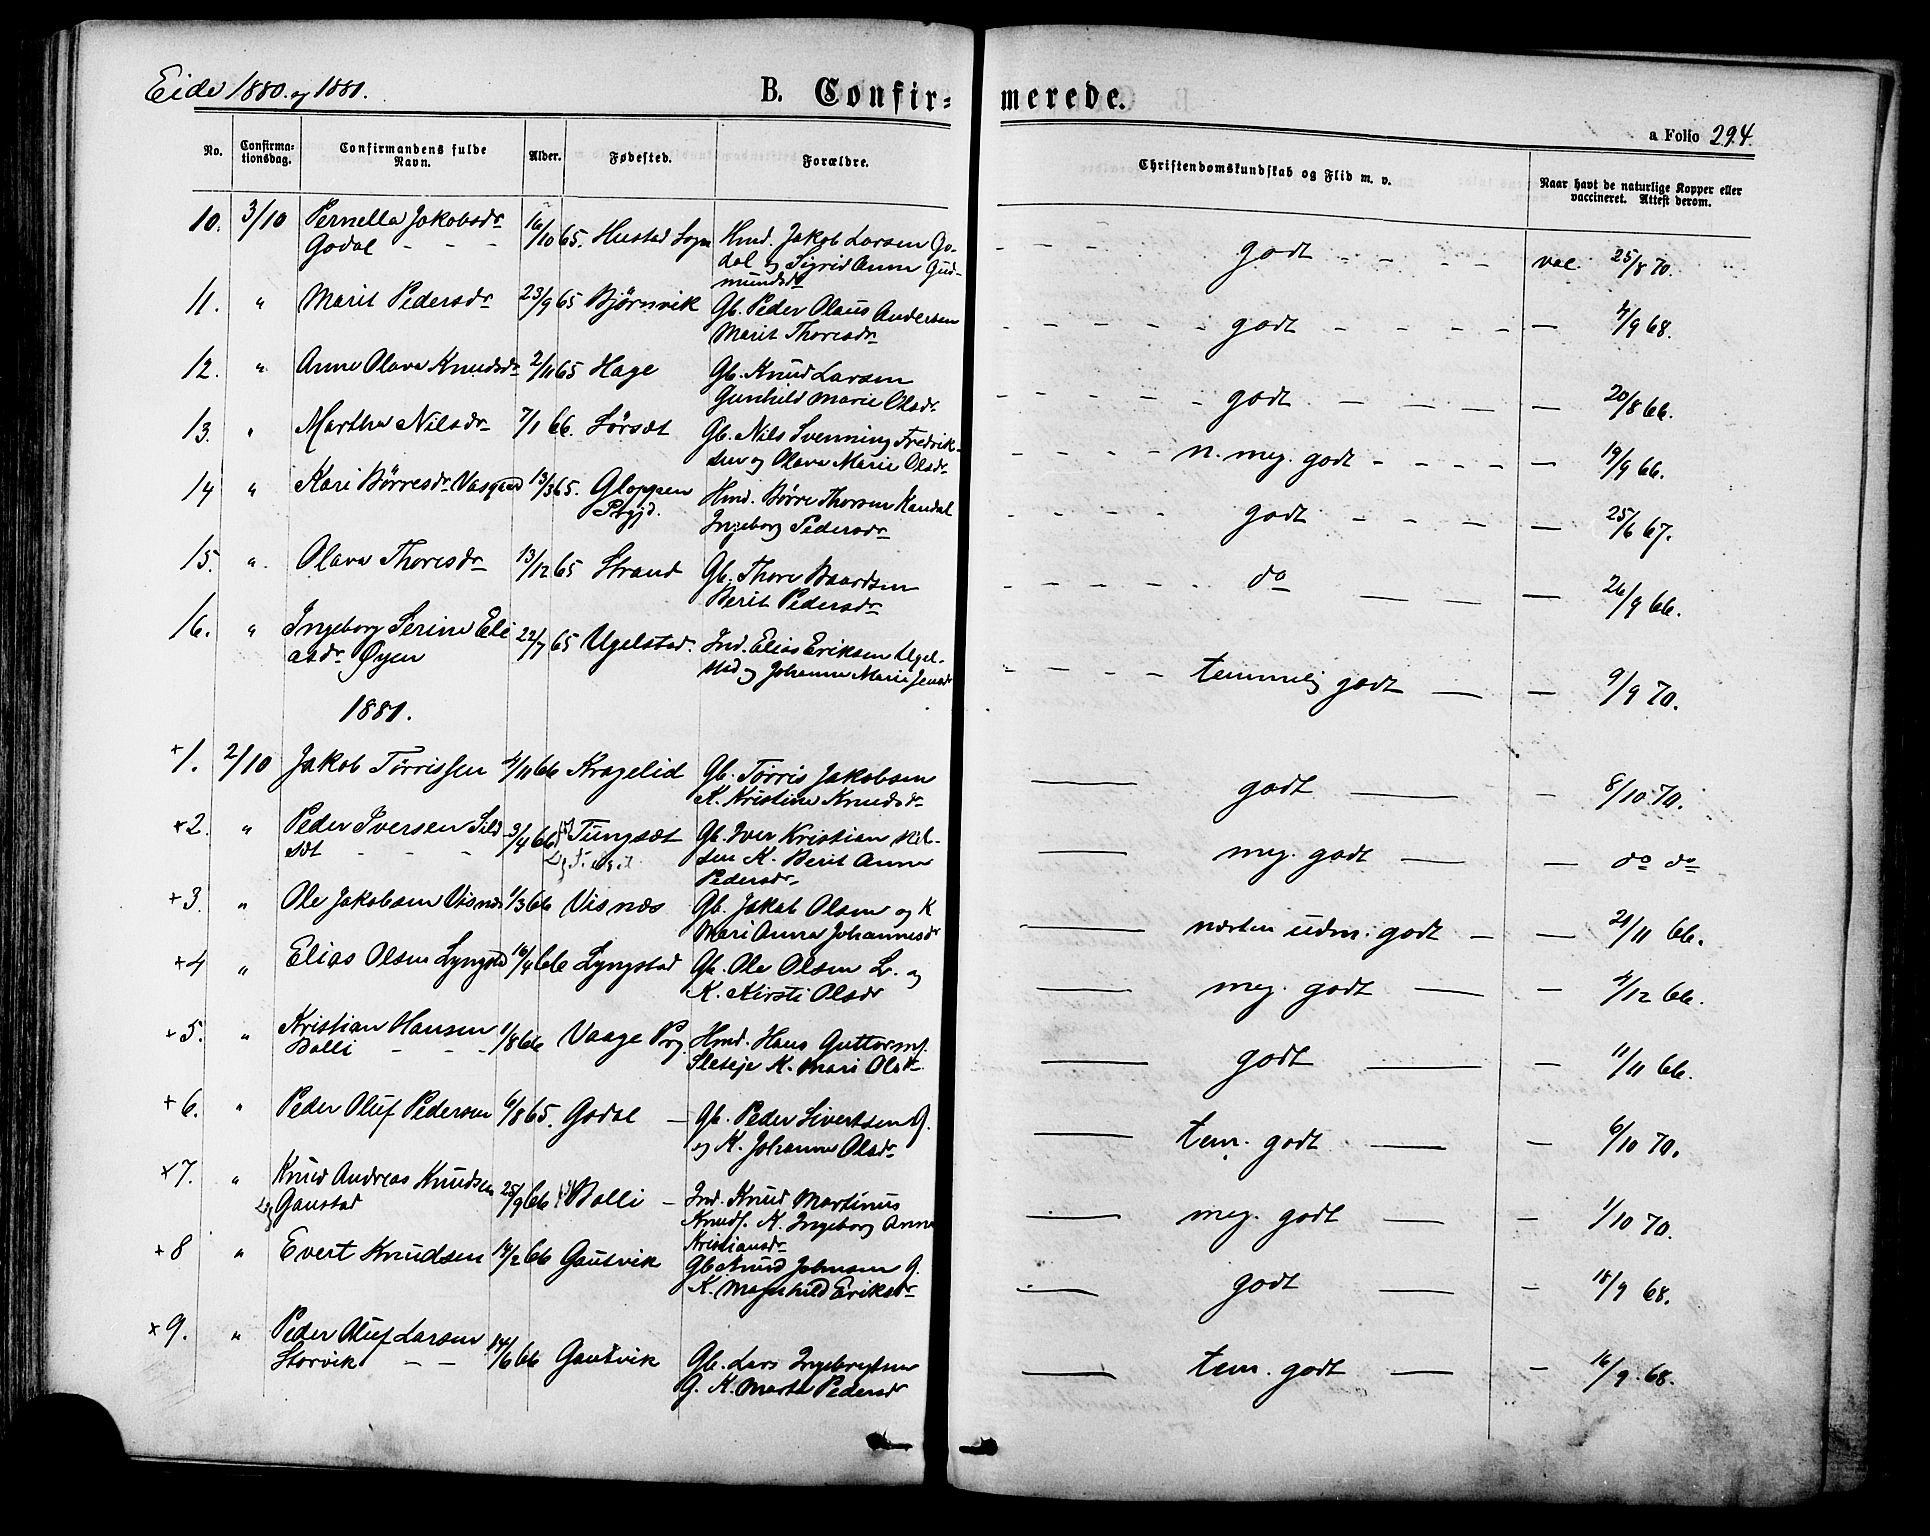 Eide 1880. og 1881.
B. Confir= merede.
a Folio 294.
No. Confirma=tionsdag. Confirmandens fulde Navn. Alder. Fødested. Forældre. Christendomskundskab og Flid m. v. Naar havt de naturlige Kopper eller vaccineret. Attest derom.
10. 3/10 Pernella Jakobsdr 16/10 65. Hustad Sogn Hmd. Jakob Larsen Go- godt vac. 25/8 70.
Godal - - - dal og Sigrid Anne Gud-
mundsdr
11. " Marit Pedersdr 23/9 65 Bjørnvik Gb. Peder Olaus Andersen godt — 4/9 68.
Marit Thoresdr
12. " Anne Olava Knudsdr 2/11 65 Hage Gb. Knud Larsen godt — 20/8 66.
Gunhild Marie Olsdr
13. " Martha Nilsdr 7/1 66. Sørsæt Gb. Nils Svenning Fredrik- n. meg. godt — 19/9 66.
sen og Olava Marie Olsdr
14 " Kari Børresdr Vasgaard 13/3 65. Gloppen Hmd. Børre Thorsen Kandal godt — 25/6 67.
Prgjd. Ingeborg Pedersdr
15. " Olava Thoresdr 13/12 65 Strand Gb. Thore Baardsen do — 26/9 66.
Berit Pedersdr
16. " Ingeborg Serine Eli 22/7 65 Ugelstad. Ind. Elias Eriksen Ugel- temmelig godt — 9/9 70.
asdr Øyen stad og Johanne Marie Jensdr
1881.
+1. 2/10 Jakob Tørrissen 4/11 66 Kragelid Gb. Tørris Jakobsen godt — 8/10 70.
K. Kristine Knudsdr
+2. " Peder Iversen Sild 3/4 66 Tungsæt Gb. Iver Kristian Nil- meg. godt — do do
sæt - - - sen K. Berit Anne
Pedersdr
+3. " Ole Jakobsen Visnæs 1/3 66 Visnæs Gb. Jakob Olsen og K næsten udm. godt — 21/11 66.
Mari Anna Johannesdr
+4 " Elias Olsen Lyngstad 16/4 66 Lyngstad Gb. Ole Olsen L. og meg. godt — 4/12 66.
K. Kirsti Olsdr
+5. " Kristian Hansen 1/8 66 Vaage Prg. Hmd. Hans Guttorms. godt — 11/11 66.
Bolli - - - Sleteje K. Mari Olsdr
+6. " Peder Oluf Pedersen 6/8 65. Godal — Gb. Peder Sivertsen G. tem. godt — 6/10 70.
og K. Johanne Olsdr
+7. " Knud Andreas Knudsen 25/9 66 Bolli — Ind. Knud Martinus meg. godt — 1/10 70.
Gaustad Knuds. K. Ingeborg Anne
Kristiansdr
+8 " Evert Knudsen 14/2 66 Gautvik Gb Knud Johnsen G. godt — 18/9 68.
K. Magnhild Eriksdr
+9. " Peder Oluf Larsen 14/6 66 Gautvik Gb. Lars Ingebrigtsen tem. godt — 16/9 68.
Storvik - - G. K. Marta Pedersdr